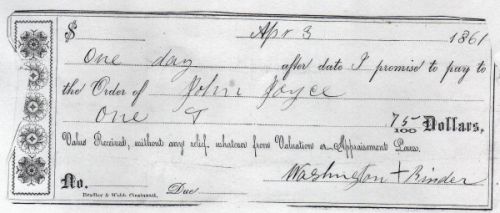 $ Apr 3 1861
One day after date I promise to pay to
the Order of John Joyce
One & 75/100 Dollars,
Value Received, without any relief whatever from Valuation or Appraisement Laws.
Washington + Binder
No. Due
Bradley & Webb, Cincinnati.